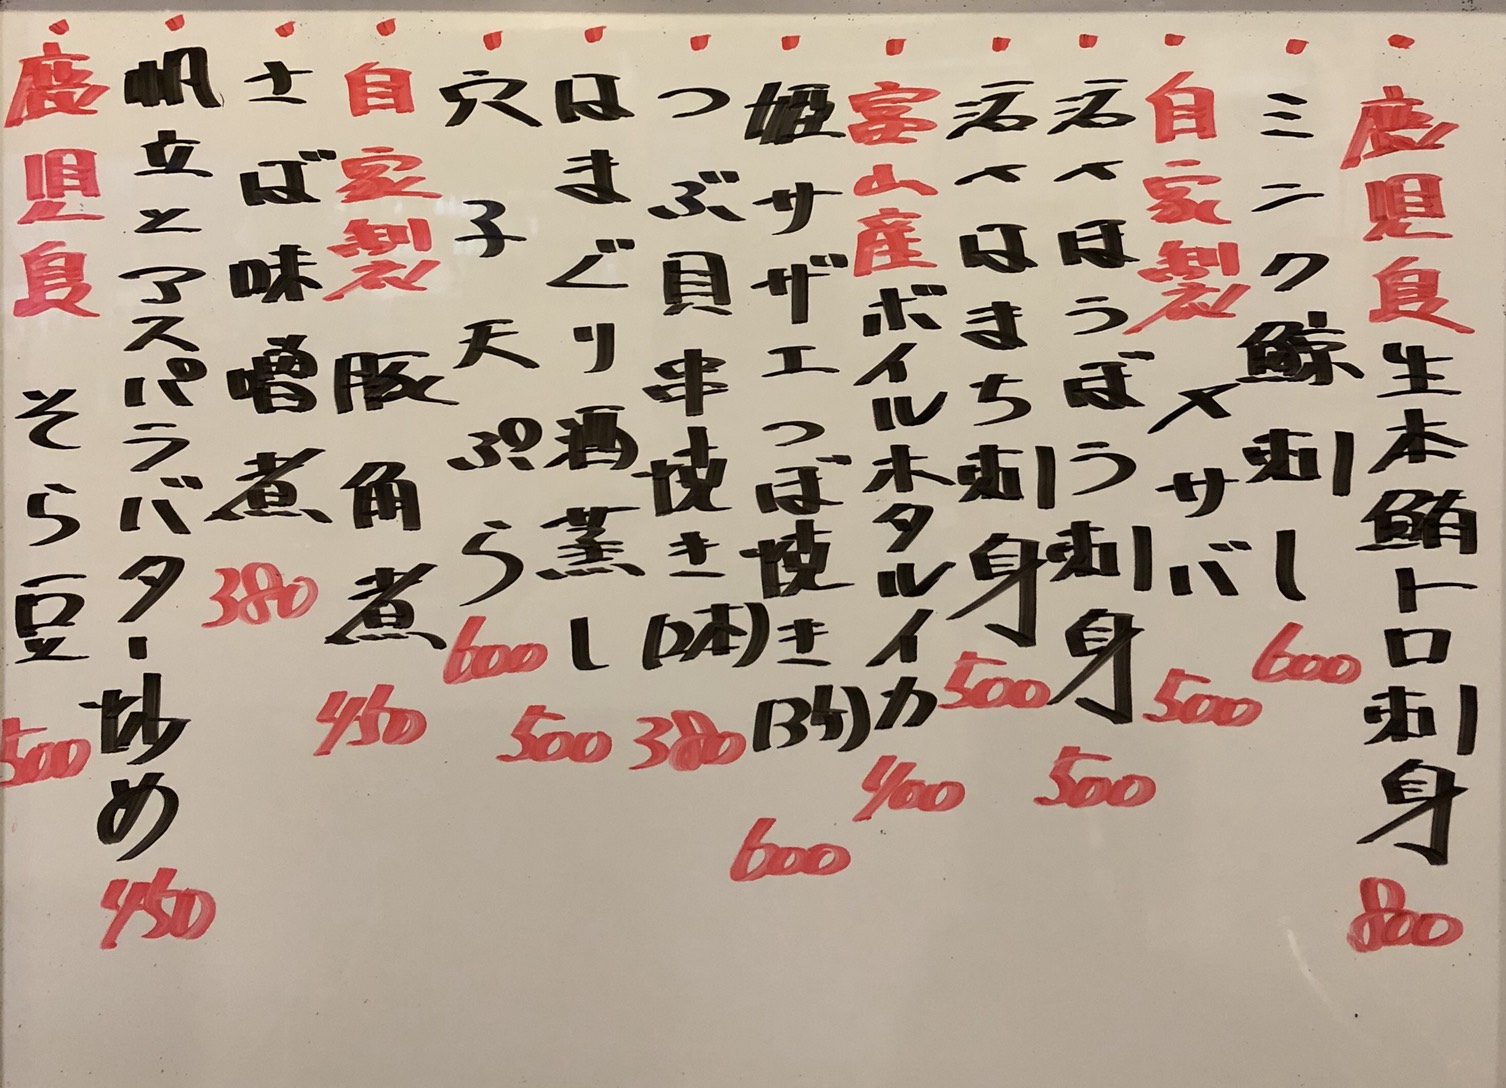 ・鹿児島生本鮪トロ刺身 800
・ミンク鯨刺し 600
・自家製〆サバ 500
・活〆ほうぼう刺身 500
・活〆はまち刺身 500
・富山産ボイルホタルイカ 400
・姫サザエつぼ焼き(3ケ) 600
・つぶ貝串焼き(2本) 380
・はまぐり酒蒸し 500
・穴子天ぷら 600
・自家製 豚角煮 450
・さば味噌煮 380
・帆立とアスパラバター炒め 450
・鹿児島 そら豆 500